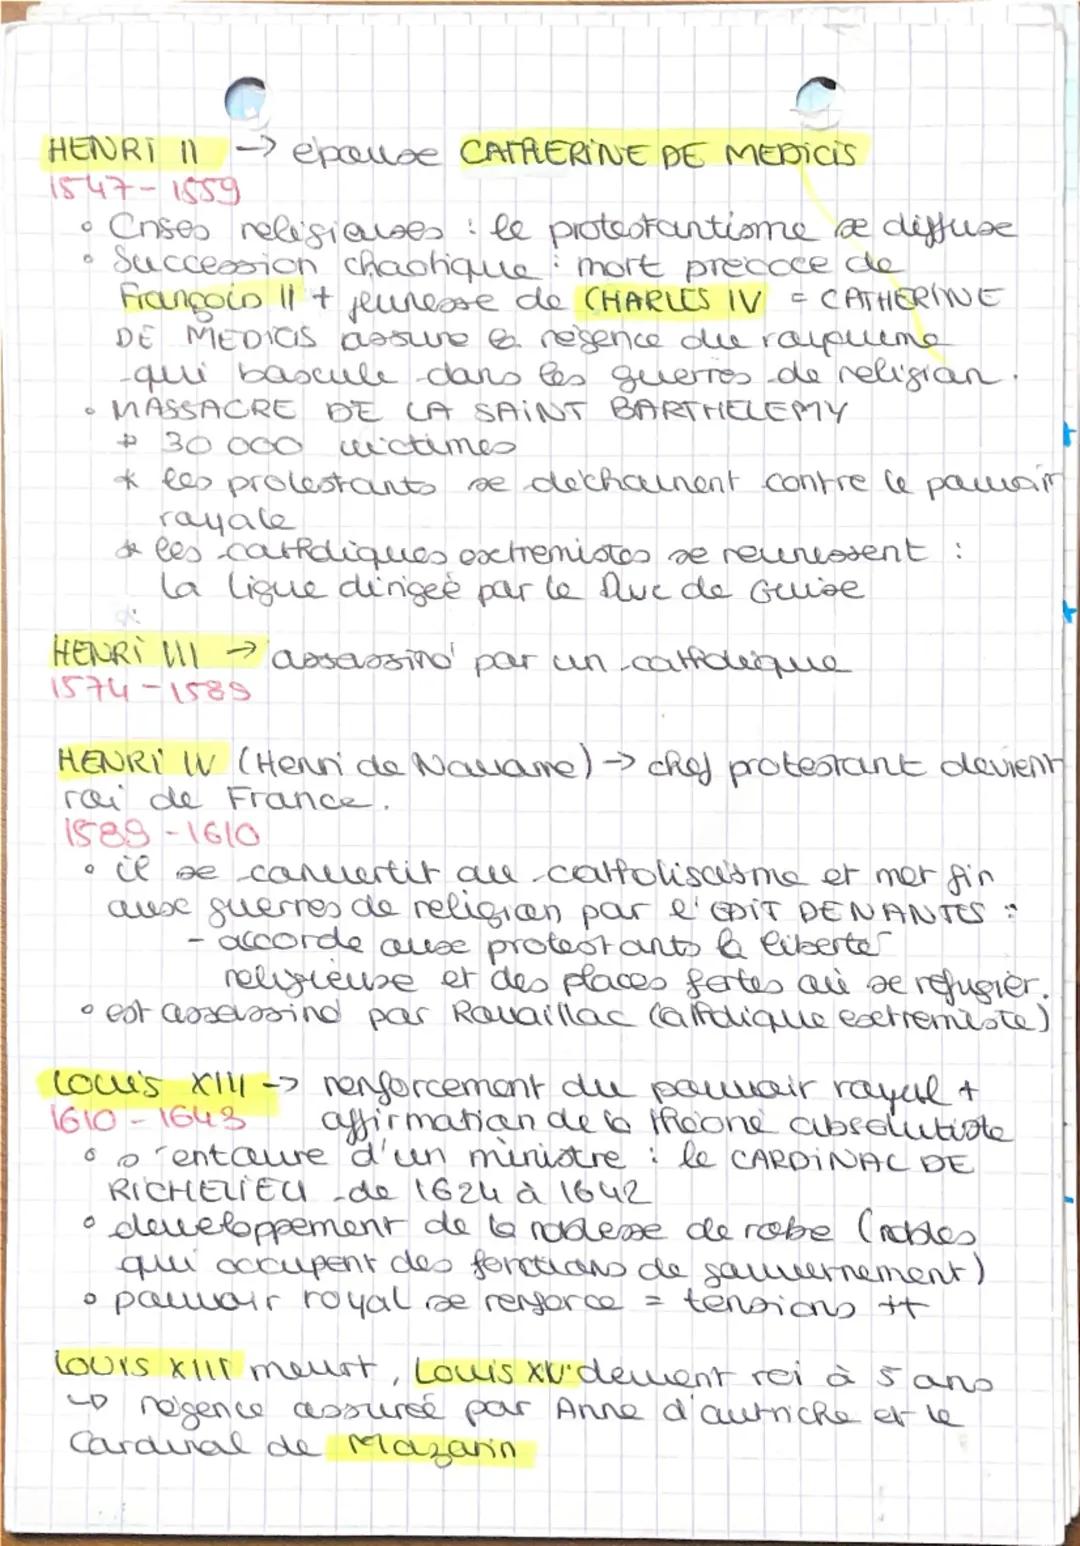 HENRI II → epouse CATHERINE DE MEDICIS
1547-1559
• Crises religieuses : le protestantisme se diffuse
• Succession chaotique : mort precoce de
François II + jeunesse de CHARLES IV = CATHERINE
DE MEDICIS assure la régence du royaume
qui bascule dans les guerres de religion.
• MASSACRE DE LA SAINT BARTHELEMY
* 30 000 victimes
* les protestants se déchainent contre le pouvoir
royale
* les catholiques extremistes se reunissent :
la ligue dirigeé par le Duc de Guise
HENRI III → assassiné par un catholique
1574-1589
HENRI IV (Henri de Navarre) → chef protestant devient
roi de France.
1589-1610
• il se convertit au catholiscisme et met fin
aux guerres de religion par l'EDIT DE NANTES :
- accorde aux protestants la liberté
religieuse et des places fortes où se refugier.
• est assassiné par Ravaillac (catholique extremiste)
Louis XIII → renforcement du pouvoir royal +
1610-1643 affirmation de la théorie absolutiste
• s'entoure d'un ministre : le CARDINAL DE
RICHELIEU de 1624 à 1642
• developpement de la noblesse de robe (nobles
qui occupent des fonctions de gouvernement)
• pouvoir royal se renforce = tensions ++
LOUIS XIII meurt, Louis XIV devient roi à 5 ans
↳ régence assurée par Anne d'autriche et le
Cardinal de Mazarin